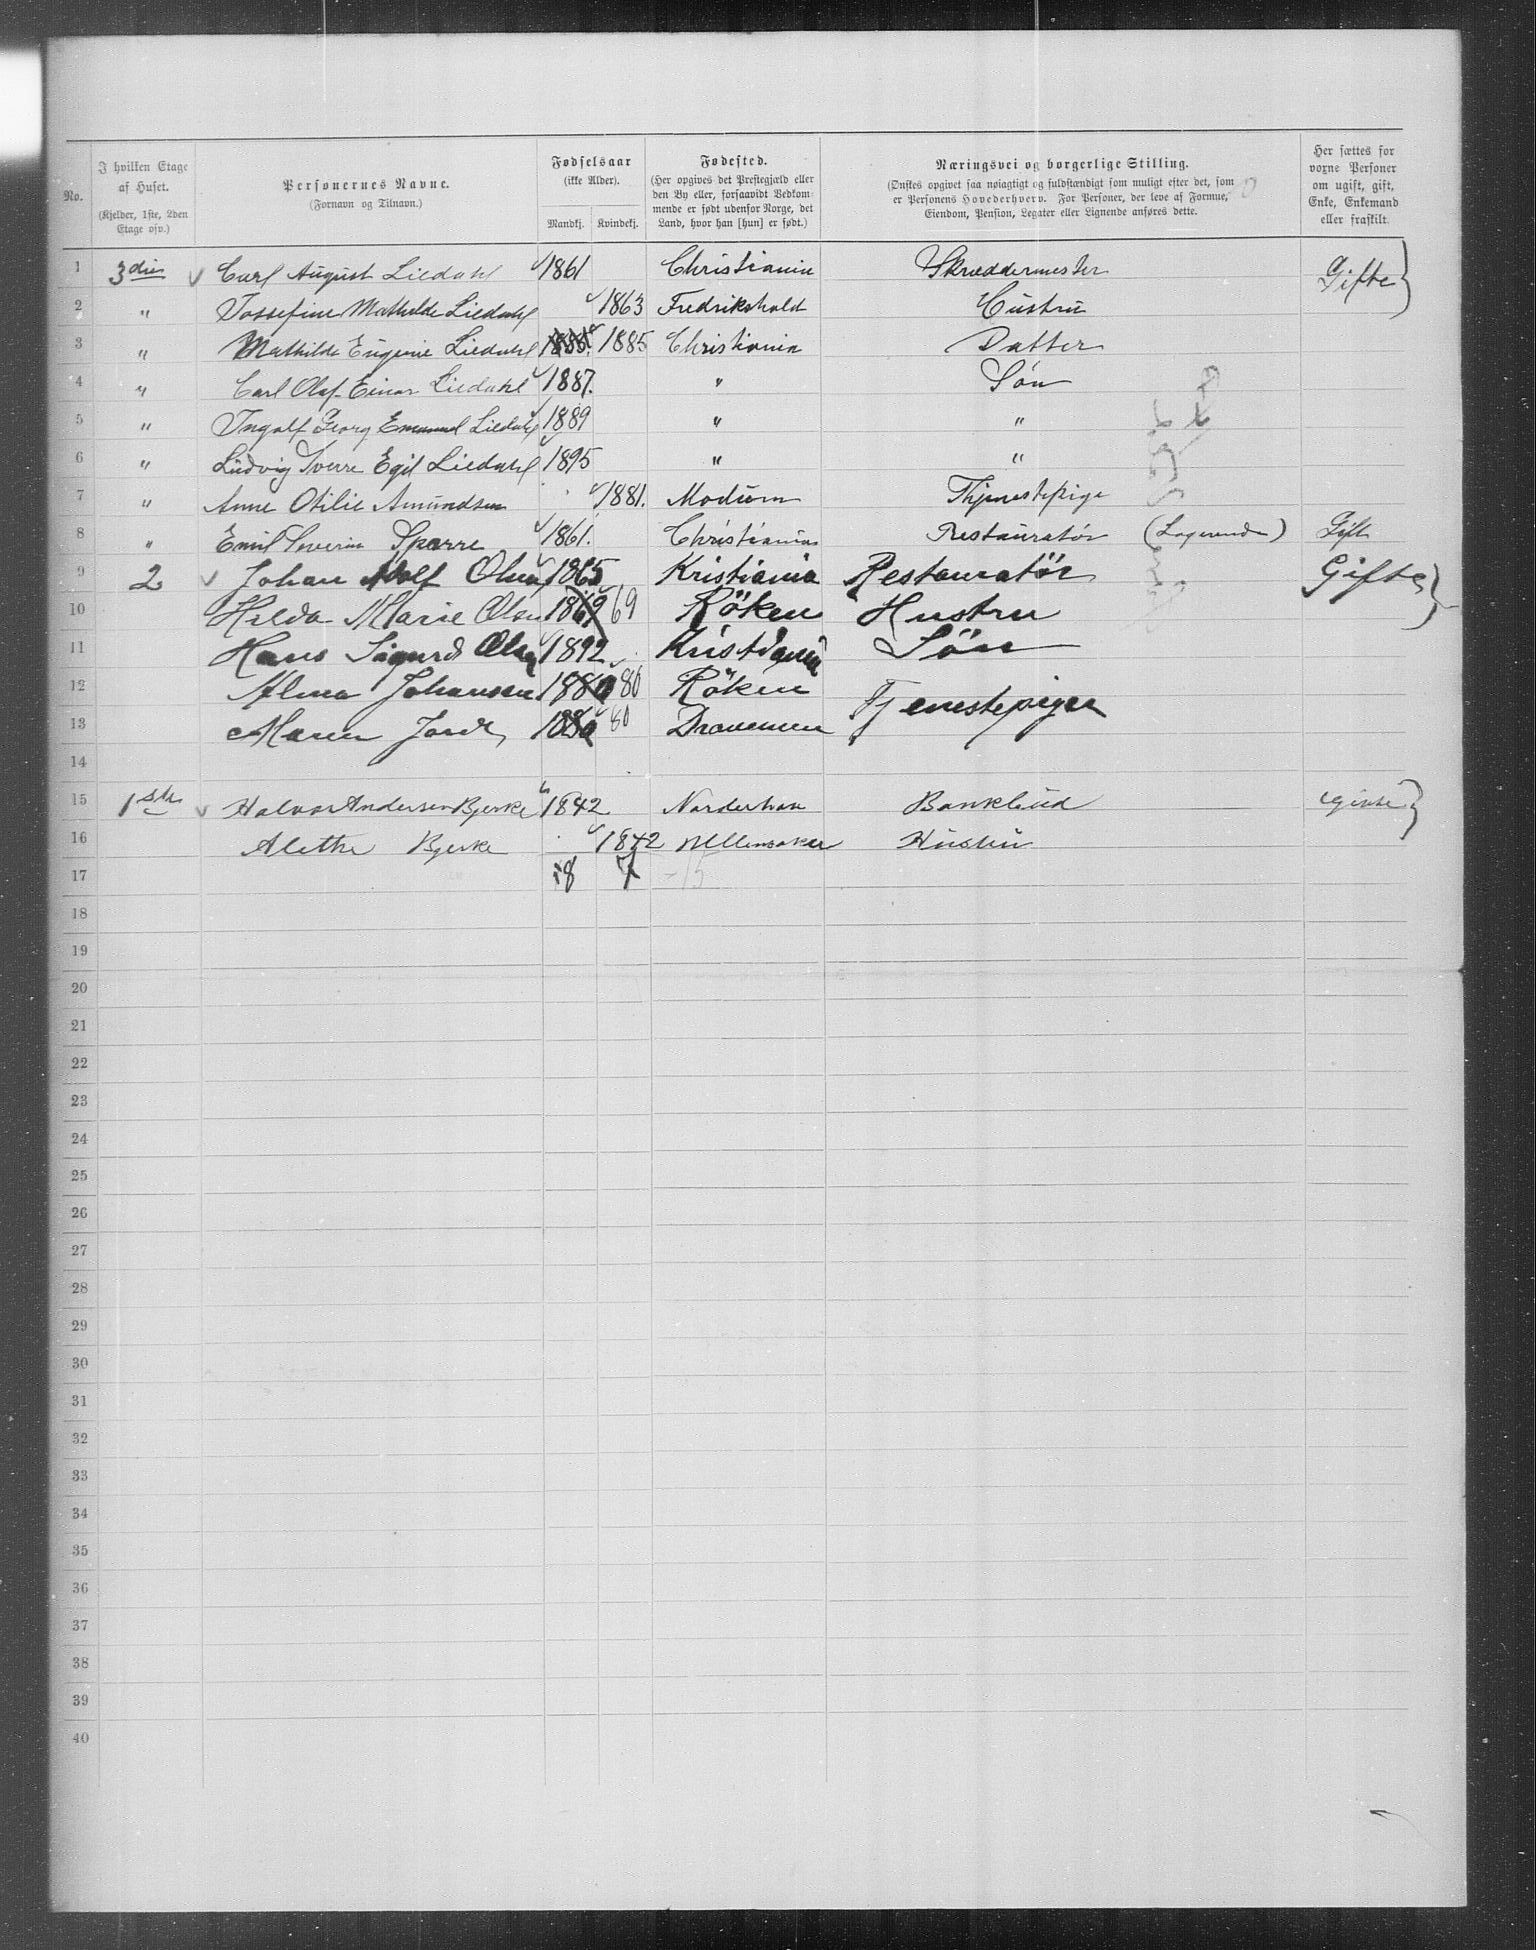 No.
I hvilken Etage af Huset. (Kjelder, 1ste, 2den Etage osv.)
Personernes Navne. (Fornavn og Tilnavn.)
Fødselsaar (ikke Alder). Mandkj. Kvindekj.
Fødested. (Her opgives det Præstegjæld eller den By eller, forsaavidt Vedkommende er født udenfor Norge, det Land, hvor han [hun] er født.)
Næringsvei og borgerlige Stilling. (Ønskes opgivet saa nøiagtigt og fuldstændigt som muligt efter det, som er Personens Hovederhverv. For Personer, der leve af Formue, Eiendom, Pension, Legater eller Lignende anføres dette.
Her sættes for voxne Personer om ugift, gift, Enke, Enkemand eller fraskilt.
1 3die Carl August Liedahl 1861 Christiania Skræddermester Gifte
2 " Jossefine Mathilde Liedahl 1863 Fredrikshald Hustru
3 " Mathilde Eugenie Liedahl 1885 1885 Christiania Datter
4 " Carl Olaf Einar Liedahl 1887. " Søn
5 " Ingolf Georg Emanuel Liedahl 1889 " "
6 " Ludvig Sverre Egil Liedahl 1895 " "
7 " Anne Otilie Amundsen 1881. Modum Thjenestepige
8 " Emil Severin Sparre 1861. Christiania Restauratør (Logerende) Gift
9 2 Johan Adolf Olsen 1865 Kristiania Restauratör Gifte
10 Hilda Marie Olsen 1869 69 Röken Hustru
11 Hans Sigurd Olsen 1892 Kristiania Sön
12 Alma Johansen 1880 80 Röken Tjenestepiger
13 Maren 1880 80 Drammen
14
15 1ste Halvor Andersen Bjerke 1842 Norderhov Bankbud Givte
16 Alethe Bjerke 1842 Ullensaker Hustru
17 8 7 15
18
19
20
21
22
23
24
25
26
27
28
29
30
31
32
33
34
35
36
37
38
39
40